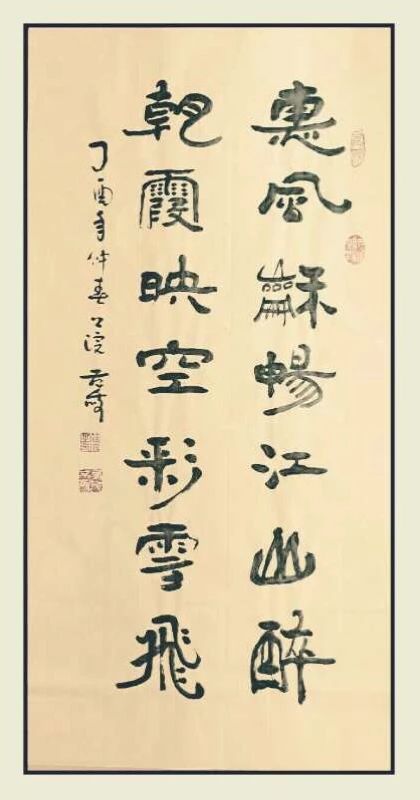 惠風龢暢江山醉
朝霞映空彩雲飛
丁酉年仲春